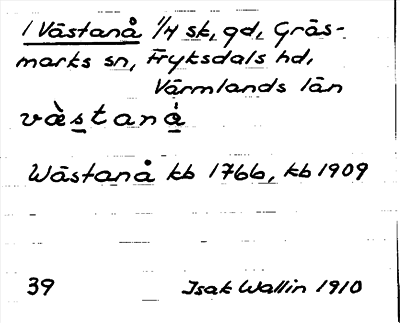 1 Västanå 1/4 sk, gd, Gräs-
marks sn, Fryksdals hd,
Värmlands län
vàstanȧ̀
Wästanå kb 1766, kb 1909
39 Isak Wallin 1910